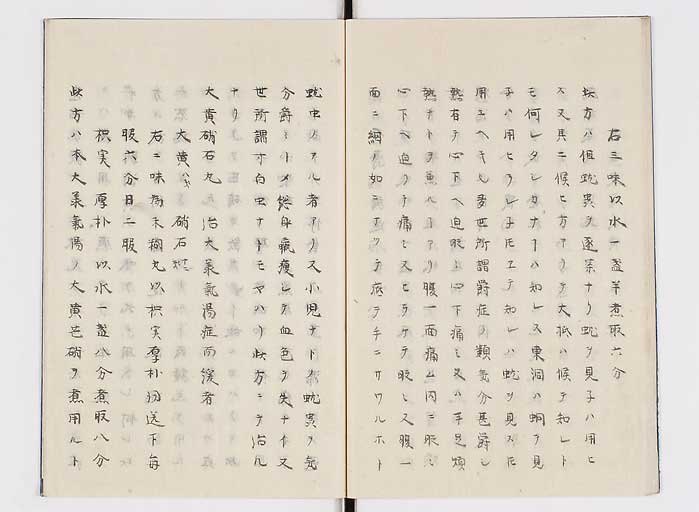 右三味以水一盞半煮取六分
此方ハ但蚘異ヲ逐茶ナリ蚘ヲ見子ハ用ヒ
ス又其ニ候ヒ方アリテ大抵ハ候テ知レト
モ何レタシカナーハ知レス東洞ハ蚵ヲ見
子ハ用ヒラレ子氏エテ知レハ蚘ヲ見スモ
用ユヘキモ多世所謂爵症ノ類気分甚爵シ
熱有テ心下ヘ迫股シ心下痛ミ又ハ手足煩
熱ナトヲ魚ルーアリ腹一面痛ム内ニ脹シ
心下ヘ迫リテ痛ミ又ヒラケテ脹ミ又腹一
面ニ網ノ如ニナツテ底ヲ手ニサワルホト
蚘虫カアル者アリ又小児ナトハ蚘異ヲ気
分爵シーメ終身羸瘦シテ血色ヲ失ナイ又
世所謂寸白虫ナトモヤハリ此方ニテ治ル
ナリ
大黄硝石丸 治大承氣湯症而緩者
大黄 硝石
右二味為末糊丸以枳実厚朴湯送下毎
服六分日二服
枳実 厚朴 以水一盞八分煮取八分
此方ハ本大承氣湯ハ大黄芒硝ヲ煮用ルト